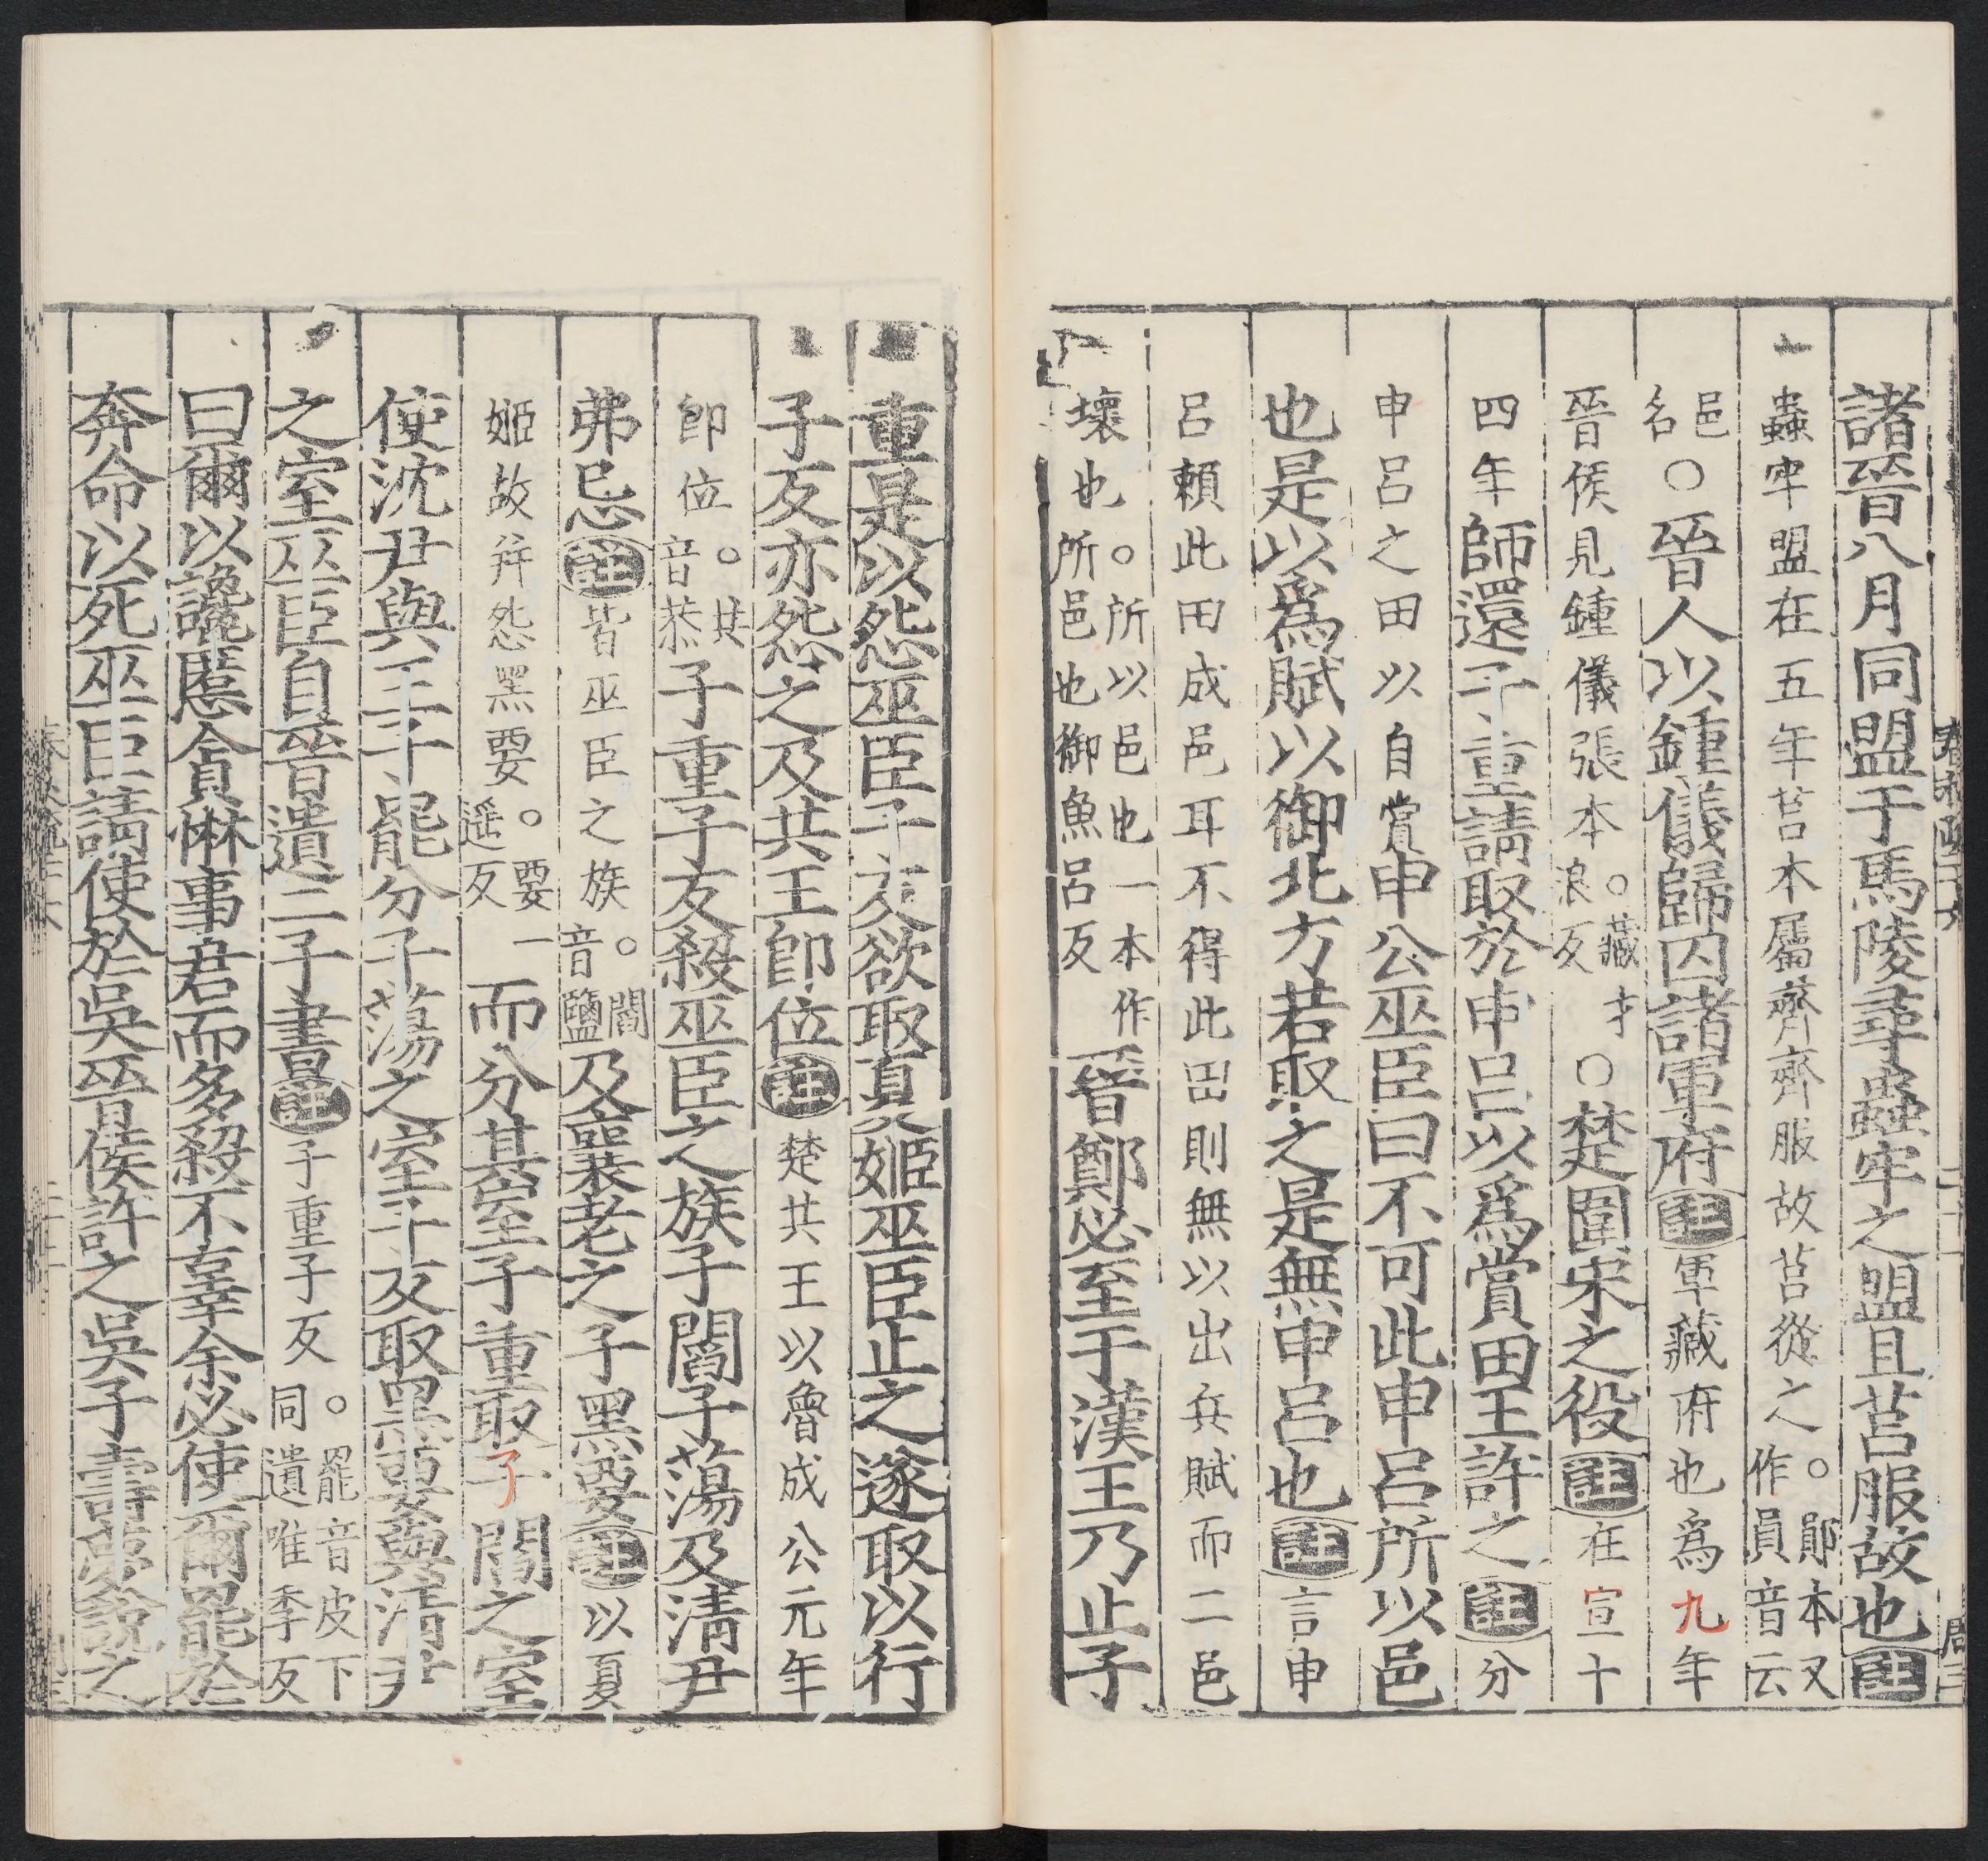 諸晉八月同盟于馬陵尋蟲牢之盟且莒服故也註
蟲牢盟在五年莒本屬齊齊服故莒從之○鄖本又作員音云
邑名○晉人以鍾儀歸囚諸軍府註軍藏府也爲九年
晉侯見鍾儀張本○藏才浪反○楚圍宋之役註在宣十
四年師還子重請取於申呂以爲賞田王許之註分
申呂之田以自賞申公巫臣曰不可此申呂所以邑
也是以爲賦以御北方若取之是無申呂也註言申
呂賴此田成邑耳不得此田則無以出兵賦而二邑
壞也○所以邑也一本作所邑也御魚呂反晉鄭必至于漢王乃止子
重是以怨巫臣子反欲取夏姬巫臣止之遂取以行
子反亦怨之及共王卽位註楚共王以魯成公元年
卽位○共音恭子重子反殺巫臣之族子閻子蕩及淸尹
弗忌註皆巫臣之族○閻音鹽及襄老之子黑要註以夏
姬故并怨黑要○要一遥反而分其室子重取子閻之室
使沈尹與王子罷分子蕩之室子反取黑要與淸尹
之室巫臣自晉遺二子書註子重子反○罷音皮下同遺唯季反
曰爾以讒慝貪惏事君而多殺不辜余必使爾罷於
奔命以死巫臣請使於吳晉侯許之吳子壽夢說之